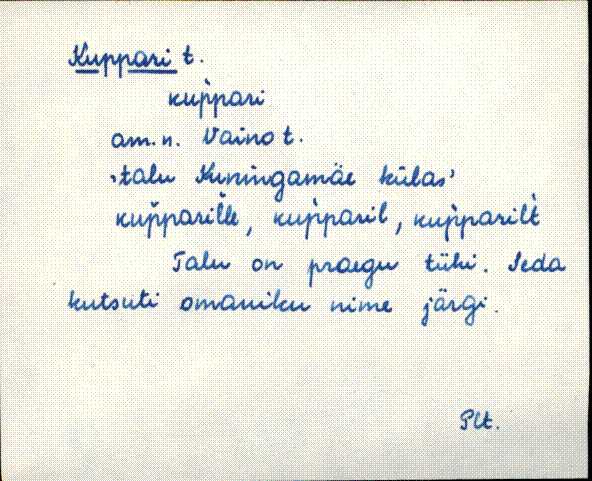 Kuppari t.
kup̀pari
am. n. Vaino t.
›talu Kuningamäe külas›
kup̆parille, kup̀paril, kup̀parilt̀
Talu on praegu tühi. Seda
kutsuti omaniku nime järgi.
Plt.